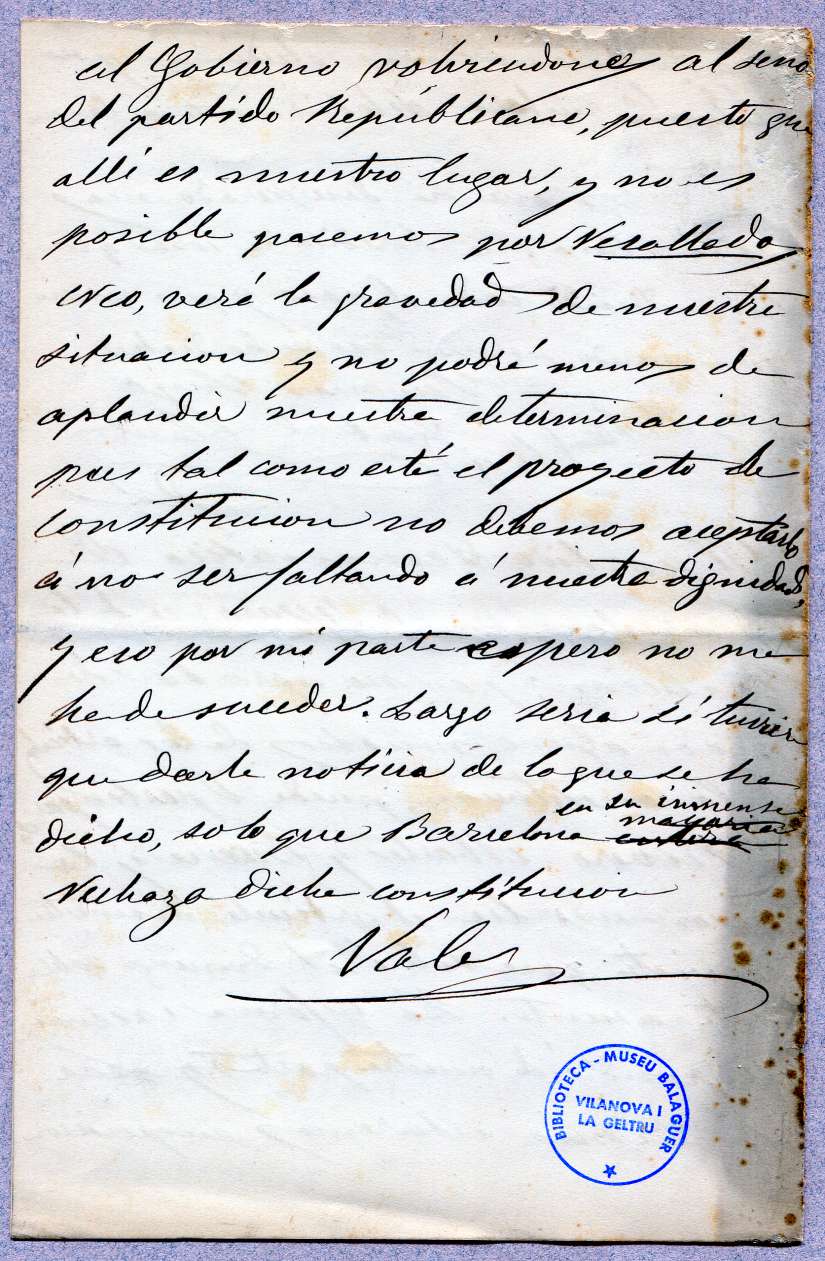 al Gobierno volviendonos al seno
del partido Republicano, puesto que
alli es nuestro lugar, y no es
posible pasemos por
verá la gravedad de nuestra
situacion y no podrá menos de
aplaudir nuestra determinacion
pues tal como está el proyecto de
constitucion no debemos aceptarlo
á no ser faltando á nuestra dignidad,
y eso por mi parte espero no me
ha de suceder. Largo seria si tuviera
que darle noticia de lo que se ha
dicho, solo que Barcelona en su inmensa
mayoria entera
rechaza dicha constitucion
Vale
BIBLIOTECA - MUSEU BALAGUER
VILANOVA I
LA GELTRU